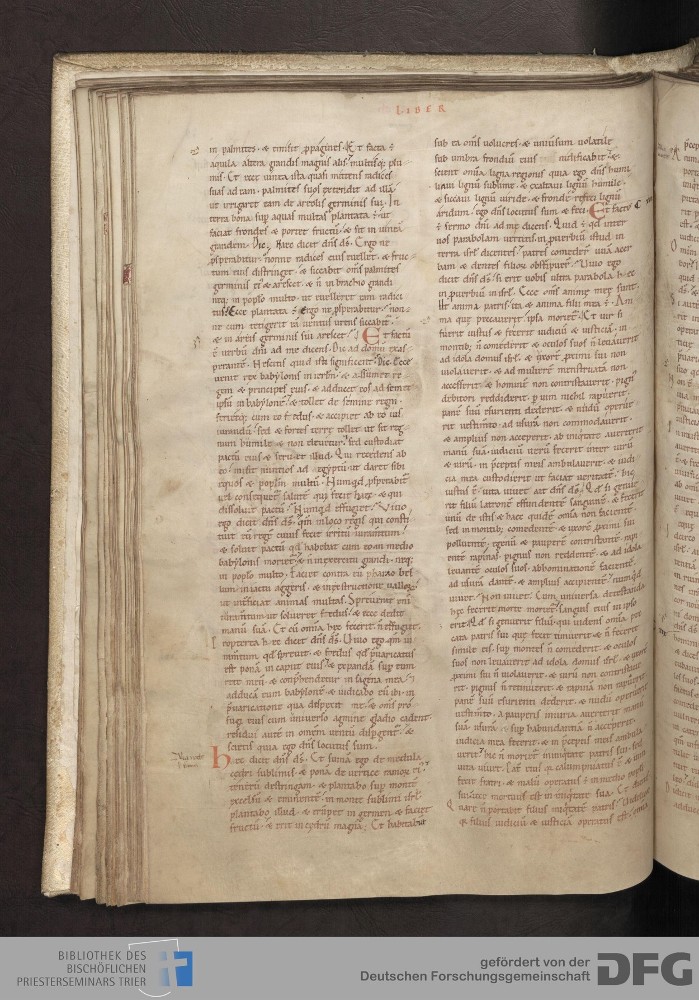 LIBER
in palmites. & emisit ppagines. Et facta ē
aquila altera grandis magnis alis. multisq; plu
mis. Et ecce uinea ista quasi mittens radices
suas ad eam. palmites suos extendit ad illā
ut irrigaret eam de areolis germinis sui. In
terra bona sup aquas multas plantata ē. ut
faciat frondes & portet fructū. & sit in uineā
grandem. Dic. Hæc dicit dn̄s ds̄. Ergo ne
psperabitur? nonne radices eius euellet. & fruc
tum eius distringet. & siccabit om̄s palmites
germinis ei. & arescet. & n̄ in brachio grandi
neq; in poplo multo. ut euelleret eam radici
tus? Ecce plantata ē. Ergo ne psperabitur? non
ne cum tetigerit eā uentus urens siccabit.
& in areis germinis sui arescet? Et factū
ē uerbū dn̄i ad me dicens. Dic ad domū exas
perantē. Nescitis quid ista significent? Dic. Ecce
uenit rex babylonis in ierlm̄. & assumet re
gem & principes eius. & adducet eos ad semet
ipsū in babylonē. & tollet de semine regni.
ferietq; cum eo fedus. & accipiet ab eo ius
iurandū. sed & fortes terre tollet ut sit reg
num humile & non eleuetur. sed custodiat
pactū eius & seruet illud. Qui recedens ab
eo. misit nuntios ad egyptū. ut daret sibi
equos & poplm̄ multū. Numqd psperabit
uel consequet salutē qui fecit hæc. & qui
dissoluit pactū? Numqd effugiet? Uiuo
ego dicit dn̄s ds̄. qm̄ in loco regis qui consti
tuit eū regē cuius fecit irritū iuramtum.
& soluit pactū qd habebat cum eo. in medio
babylonis moriet. & n̄ in exercitu grandi. neq;
in poplo multo. faciet contra eū pharao bel
lum. in iactu aggeris. & in extructione uallor.
ut int̄ficiat animas multas. Spreuerat eni
iuramtum ut solueret fedus. & ecce dedit
manū suā. Et cū om̄ia hec fecerit. n̄ effugiet.
Propterea hec dicit dn̄s ds̄. Uiuo ego. qm̄ iu
ramtum qd spreuit. & fedus qd p̄uaricatus
est ponā in caput eius. & expandā sup eum
rete meū. & conp̄hendetur in sagena mea.
adducā eum babylonē. & iudicabo eū ibi. in
p̄uaricatione qua despexit me. & om̄s pro
fugi eius cum uniuerso agmine gladio cadent.
residui aute in omem uentū dispgentr. &
scietis quia ego dn̄s locutus sum.
Hec dicit dn̄s ds̄. Et sumā ego de medulla
cedri sublimis. & ponā de uertice ramor ei.
tenerū destringam. & plantabo sup monte
excelsū & eminentē. in monte sublimi isrl
plantabo illud. & erūpet in germen & faciet
fructū. & erit in cedrū magnā. Et habitabūt
sub ea om̄s uolucres. & uniuersum uolatile
sub umbra frondiū eius nidificabit. &
scient om̄ia ligna regionis quia ego dn̄s humi
liaui lignū sublime. & exaltaui lignū humile.
& siccaui lignū uiride. & frondere feci lignū
aridum. ego dn̄s locutus sum & feci. Et factus
ē sermo dn̄i ad me dicens. Quid ē qd inter
uos parabolam uertitis in puerbiū istud in
terra isrl dicentes. Patres comeder uuā acer
bam & dentes filior obstipuer? Uiuo ego
dicit dn̄s ds̄. si erit uobis ultra parabola hec
in puerbium in isrl. Ecce om̄s anime mee sunt.
ut anima patris. ita & anima filii mea ē. Ani
ma que peccauerit ipsa moriet. Et uir si
fuerit iustus & fecerit iudiciū & iusticiā. in
montib; n̄ comederit & oculos suos n̄ leuauerit
ad idola domus isrl. & uxorē proximi sui non
uiolauerit. & ad mulierē menstruatā non
accesserit. & hominē non contristauerit. pign
debitori reddiderit. p uim nichil rapuerit.
panē suū esurienti dederit. & nudū operue
rit uestimto. ad usurā non commodauerit.
& amplius non acceperit. ab iniqtate auerterit
manū suā. iudiciū uerū fecerit inter uirū
& uirū. in p̄ceptis meis ambulauerit. & iudi
cia mea custodierit ut faciat ueritatē. hic
iustus ē. uita uiuet ait dn̄s ds̄. Qd si genue
rit filiū latronē effundentē sanguinē. & fecerit
unū de istis. & hæc quidē om̄ia non facientē.
sed in montib; comedentē. & uxorē proximi sui
polluentē. egenū & pauperē contristantē. rapi
entē rapinas. pignus non reddentē. & ad idola
leuantē oculos suos. abhominationē facientē.
ad usurā dantē. & amplius accipientē. numqd
uiuet? Non uiuet. Cum uniuersa detestanda
hec fecerit. morte moriet. sanguis eius in ipso
erit. Qd si genuerit filiū. qui uidens om̄ia pec
cata patris sui que fecit timuerit. & n̄ fecerit
simile eis. sup montes n̄ comederit. & oculos
suos non leuauerit ad idola domus isrl. & uxorē
proximi sui n̄ uiolauerit. & uirū non contristaue
rit. pignus n̄ retinuerit. & rapinā non rapuerit.
panē suū esurienti dederit. & nudū operuerit
uestimto. a pauperis iniuria auerterit manū
suā. usurā & sup habundantiā n̄ acceperit.
iudicia mea fecerit. & in p̄ceptis meis ambula
uerit. hic n̄ moriet in iniqtate patris sui. sed
uita uiuet. Pat̄ eius qa calumpniatus ē & uim
fecit fratri. & malū operatus ē in medio popli
sui. ecce mortuus est in iniqtate sua. Et dicitis
Quare n̄ portabit filius iniqtatē patris? Uidelicet
qa filius iudiciū & iusticiā operatus est. om̄ia
BIBLIOTHEK DES
BISCHÖFLICHEN
PRIESTERSEMINARS TRIER
gefördert von der
Deutschen Forschungsgemeinschaft
DFG